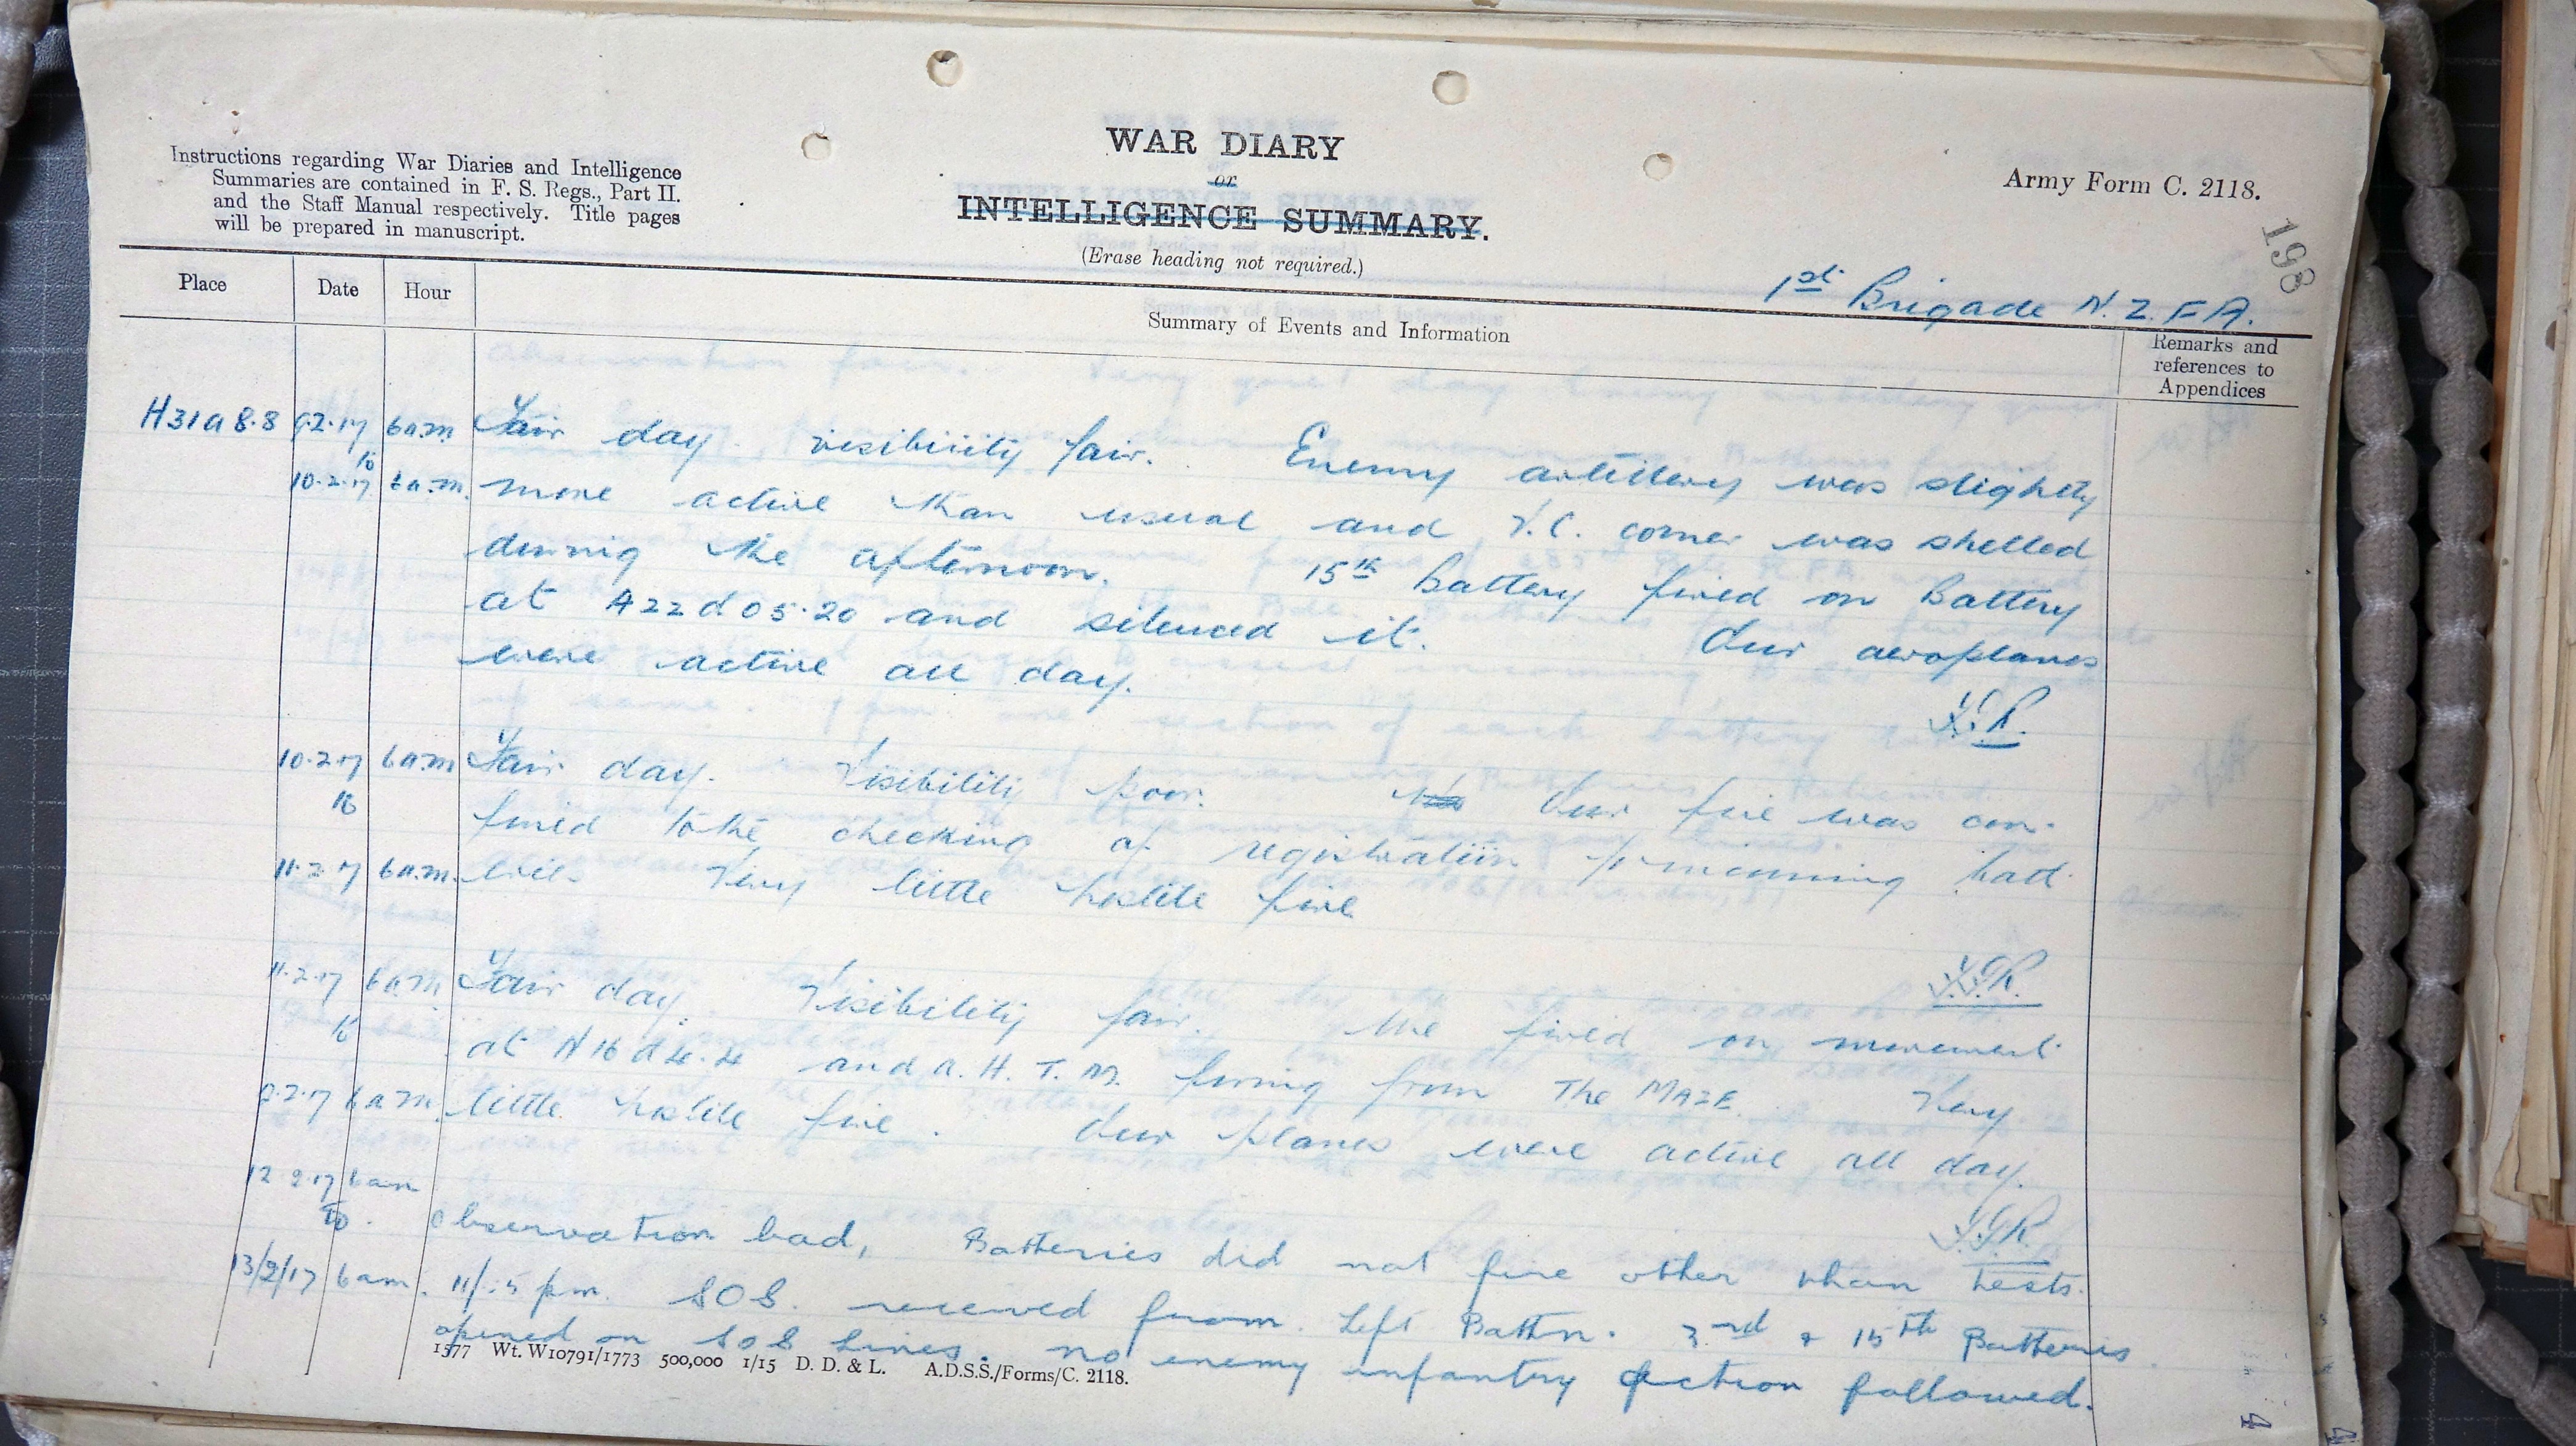 Instructions regarding War Diaries and Intelligence
Summaries are contained in F. S. Regs., Part II.
and the Staff Manual respectively. Title pages
will be prepared in manuscript.
WAR DIARY
or
INTELLIGENCE SUMMARY.
(Erase heading not required.)
Army Form C. 2118.
198
1st Brigade N.Z.F.A.
Place
Date
Hour
Summary of Events and Information
Remarks and
references to
Appendices
H31a8.8 9.2.17 6am Fair day. visibility fair. Enemy artillery was slightly
to
10.2.17 6a.m. more active than usual and V.C. corner was shelled
during the afternoon. 15th Battery fired on Battery
at A22d05.20 and silenced it. Our aeroplanes
were active all day.
10.2.17 6am Fair day. Visibility poor. Our fire was con-
to
fined to the checking of registration of incoming batt
11.2.17 6a.m. eries. Very little hostile fire
11.2.17 6am Fair day. Visibility fair. We fired on movement
to
at N16d4.4 and a H.T.M. firing from The MAZE. Very
2.2.17 6am. little hostile fire. Our planes were active all day.
12.2.17 6am
to.
Observation bad, Batteries did not fire other than tests.
13/2/17 6am. 11/.5 pm. SOS. received from Left Battn. 3rd & 15th Batteries
opened on SOS lines. no enemy infantry action followed.
1577 Wt. W10791/1773 500,000 1/15 D. D. & L. A.D.S.S./Forms/C. 2118.
4